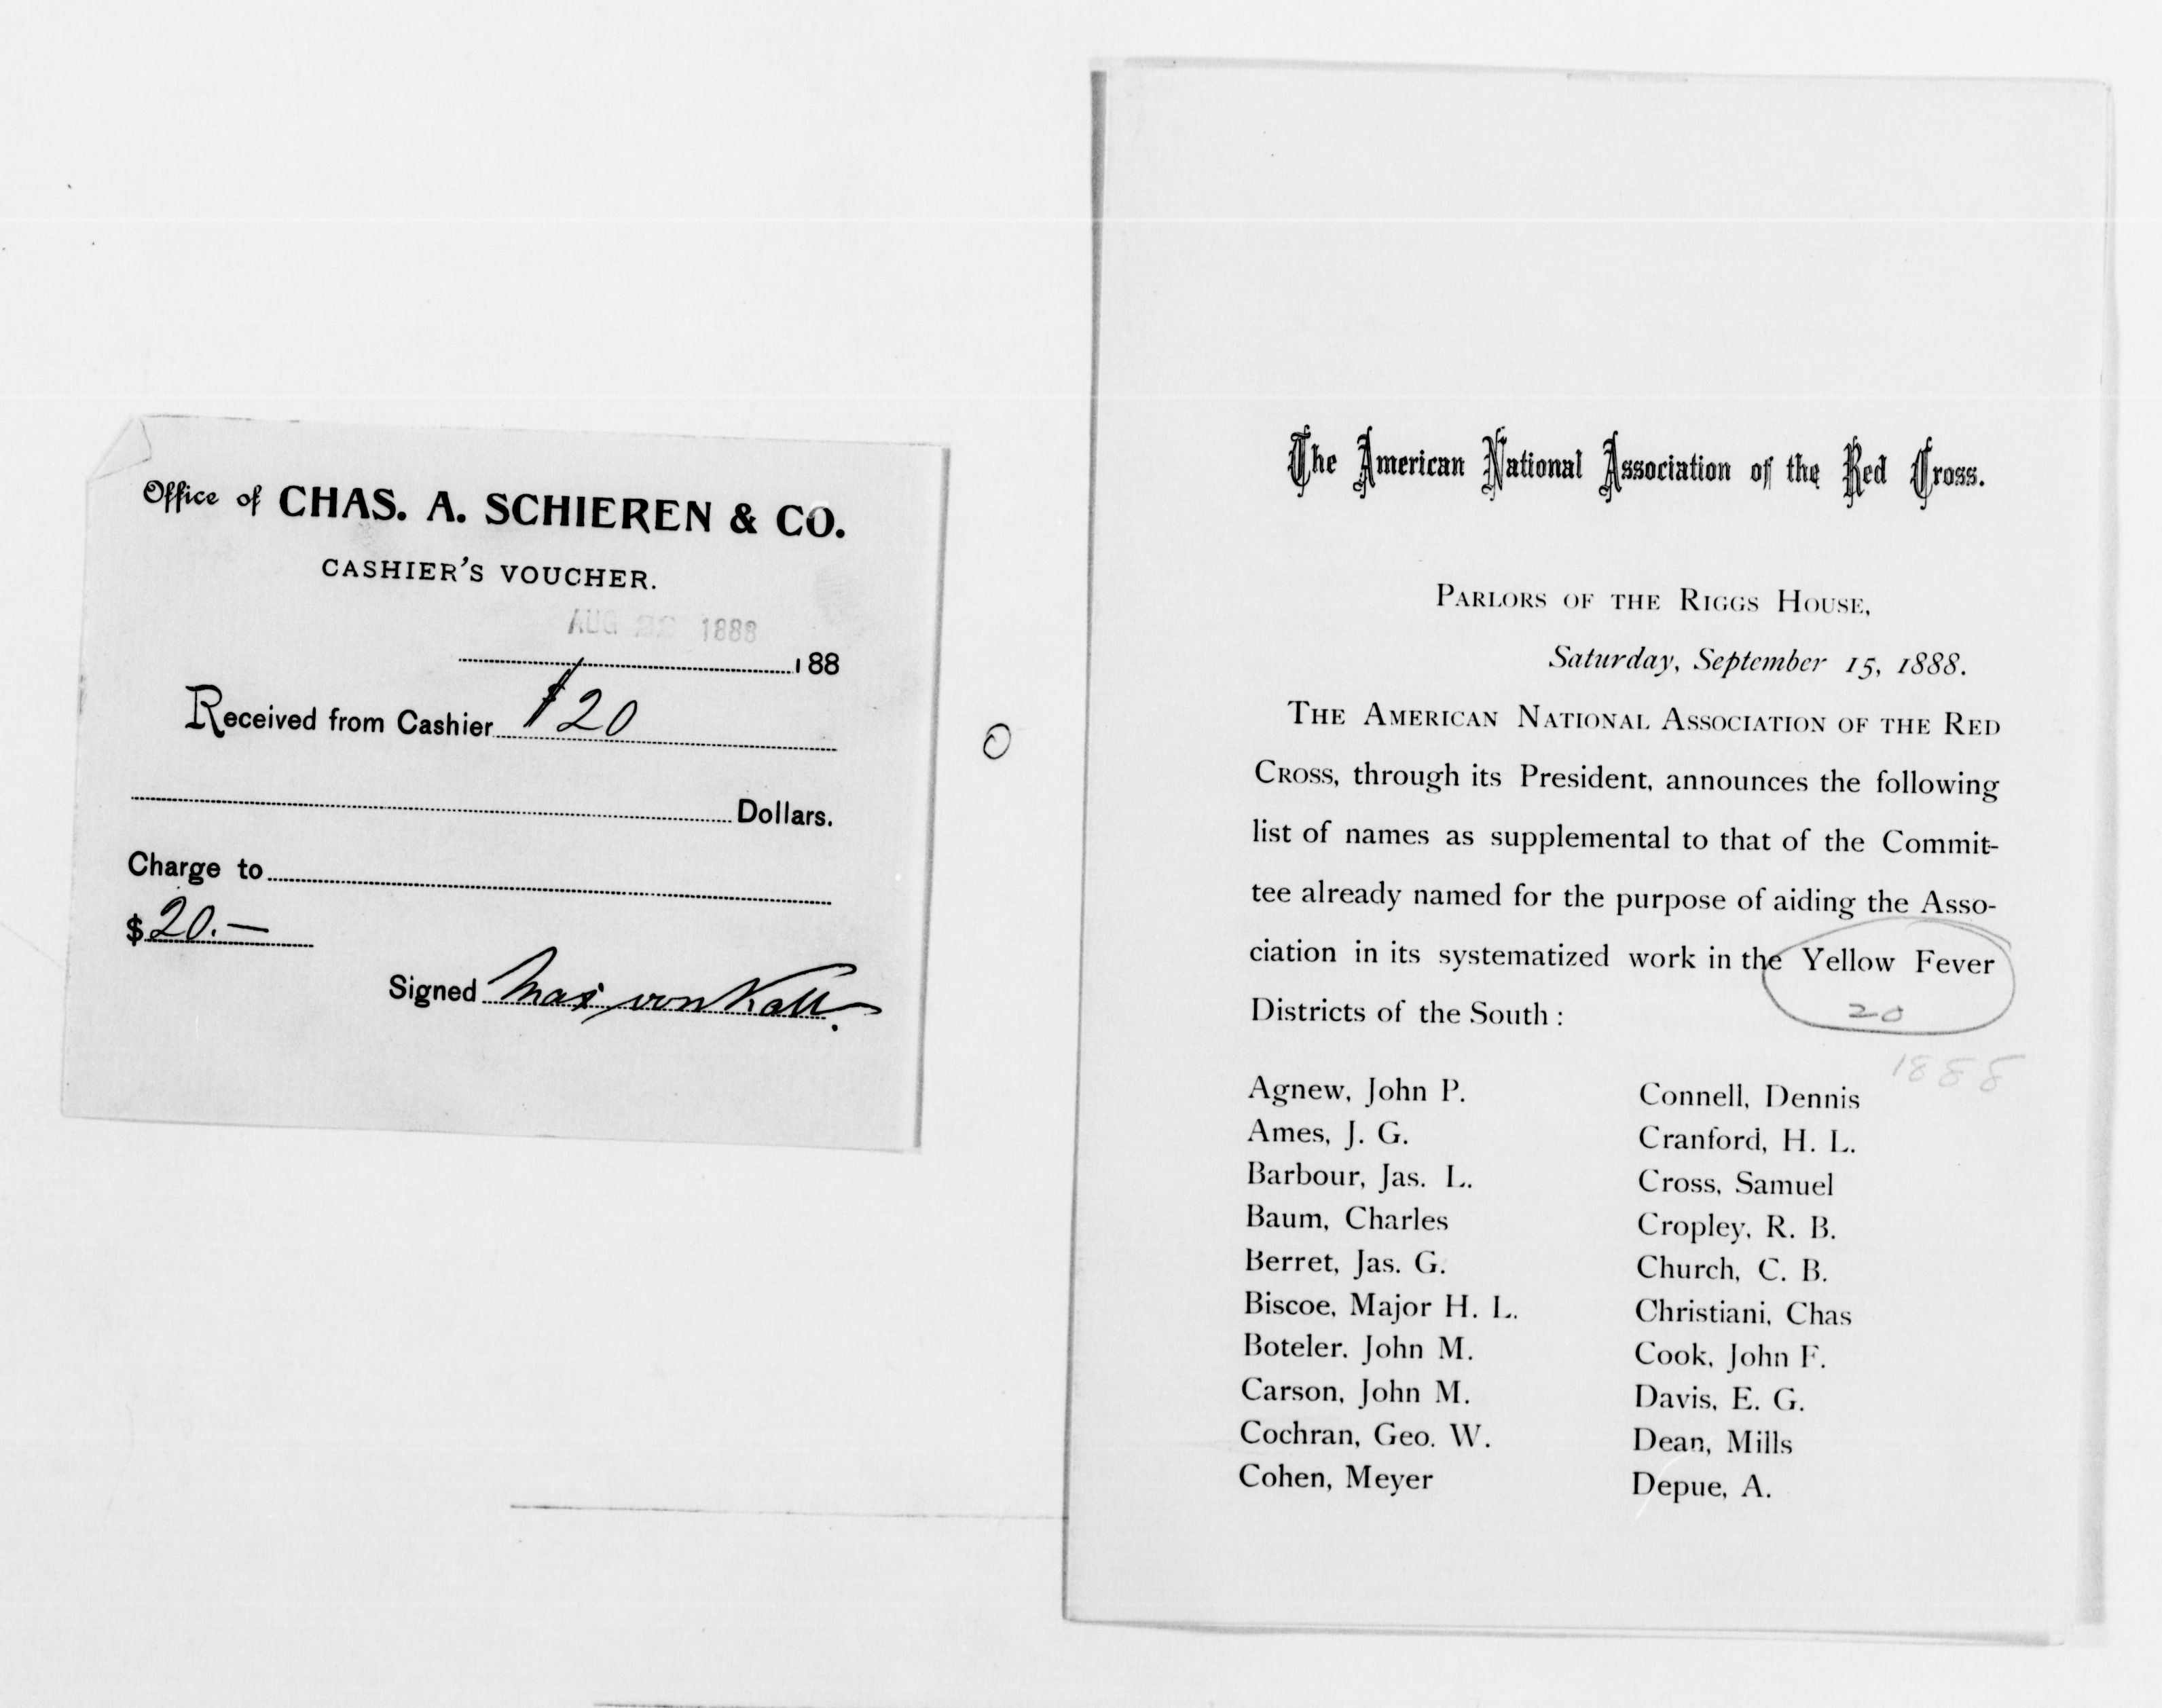 Office of CHAS. A. SCHIEREN & CO.
CASHIER'S VOUCHER.
AUG 1888
188
Received from Cashier $20
Dollars.
Charge to
$20.—
Signed Max von Kall.
O
The American National Association of the Red Cross.
PARLORS OF THE RIGGS HOUSE,
Saturday, September 15, 1888.
THE AMERICAN NATIONAL ASSOCIATION OF THE RED
CROSS, through its President, announces the following
list of names as supplemental to that of the Commit-
tee already named for the purpose of aiding the Asso-
ciation in its systematized work in the Yellow Fever
Districts of the South :
20
1888
Agnew, John P.
Ames, J. G.
Barbour, Jas. L.
Baum, Charles
Berret, Jas. G.
Biscoe, Major H. L.
Boteler. John M.
Carson, John M.
Cochran, Geo. W.
Cohen, Meyer
Connell, Dennis
Cranford, H. L.
Cross, Samuel
Cropley, R. B.
Church, C. B.
Christiani, Chas
Cook, John F.
Davis, E. G.
Dean, Mills
Depue, A.